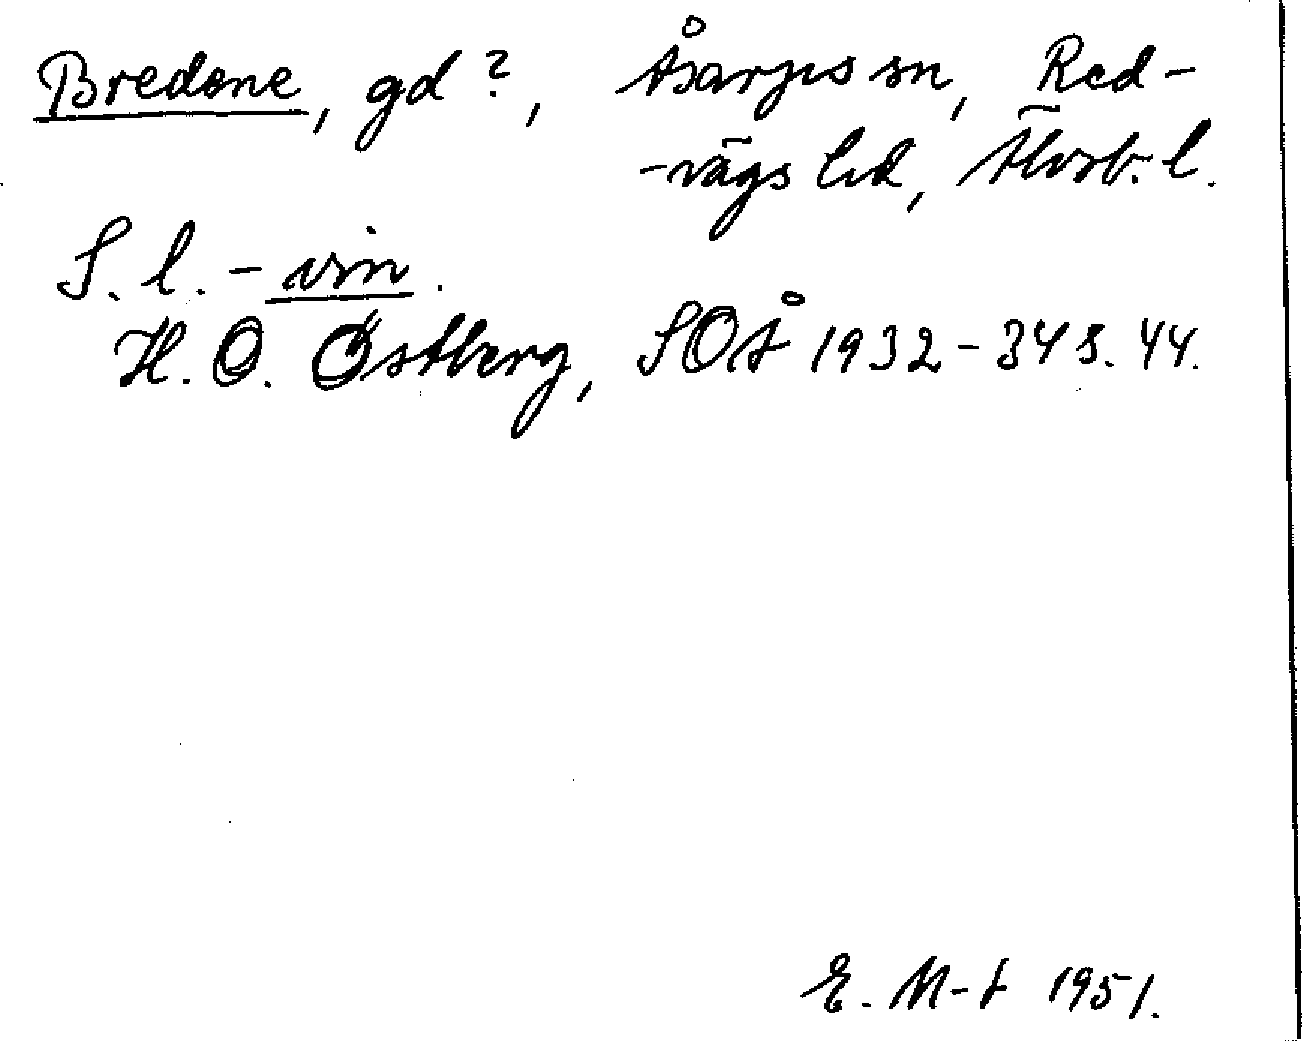 Bredene, gd?, Åsarps sn, Red-
-vägs hd, Älvsb. l.
S. l. - vin.
H. O. Östberg, SOÅ 1932-34 s. 44.
E. M-t 1951.